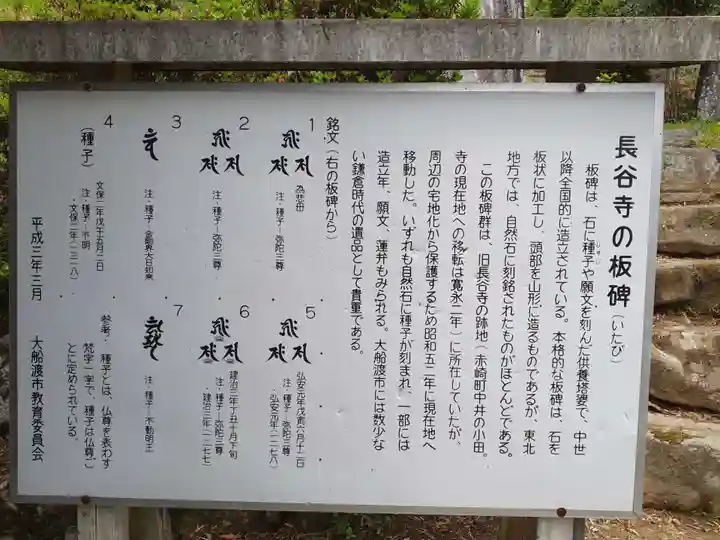 長谷寺の板碑（いたび）
板碑は、石に種子や願文を刻んだ供養塔婆で、中世
以降全国的に造立されている。本格的な板碑は、石を
板状に加工し、頭部を山形に造るものであるが、東北
地方では、自然石に刻銘されたものがほとんどである。
この板碑群は、旧長谷寺の跡地（赤崎町中井の小田。
寺の現在地への移転は寛永二年）に所在していたが、
周辺の宅地化から保護するため昭和五二年に現在地へ
移動した。いずれも自然石に種子が刻まれ、一部には
造立年、願文、蓮弁もみられる。大船渡市には数少な
い鎌倉時代の遺品として貴重である。
銘文（右の板碑から）
1
為悲母
注・種子－弥陀三尊
2
注・種子－弥陀三尊
3
注・種子－金剛界大日如来
4
（種子）
文保二年戊午五月二日
注・種子－不明
・文保二年（一三一八）
5
弘安元年戊寅六月十二日
注・種子－弥陀三尊
・弘安元年（一二七八）
6
建治三年丁丑十月下旬
注・種子－弥陀三尊
・建治三年（一二七七）
7
注・種子－不動明王
参考・種子とは、仏尊を表わす
梵字一字で、種子は仏尊ご
とに定められている。
平成三年三月
大船渡市教育委員会